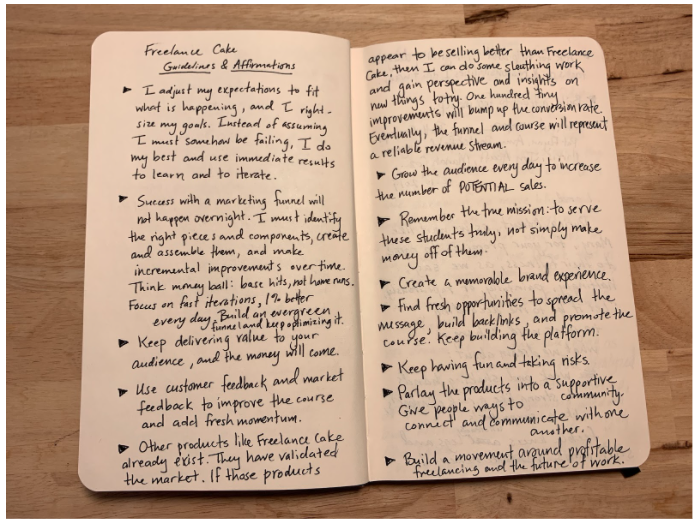 Freelance Cake
Guidelines & Affirmations
► I adjust my expectations to fit
what is happening, and I right-
size my goals. Instead of assuming
I must somehow be failing, I do
my best and use immediate results
to learn and to iterate.
► Success with a marketing funnel will
not happen overnight. I must identify
the right pieces and components, create
and assemble them, and make
incremental improvements over time.
Think money ball: base hits, not home runs.
Focus on fast iterations, 1% better
every day. Build an evergreen
funnel and keep optimizing it.
► Keep delivering value to your
audience, and the money will come.
► Use customer feedback and market
feedback to improve the course
and add fresh momentum.
► Other products like Freelance Cake
already exist. They have validated
the market. If those products
appear to be selling better than Freelance
Cake, then I can do some sleuthing work
and gain perspective and insights on
new things to try. One hundred tiny
improvements will bump up the conversion rate.
Eventually, the funnel and course will represent
a reliable revenue stream.
► Grow the audience every day to increase
the number of POTENTIAL sales.
► Remember the true mission: to serve
these students truly, not simply make
money off of them.
► Create a memorable brand experience.
► Find fresh opportunities to spread the
message, build backlinks, and promote the
course. Keep building the platform.
► Keep having fun and taking risks.
► Parlay the products into a supportive
community.
Give people ways to
connect and communicate with one
another.
► Build a movement around profitable
freelancing and the future of work.